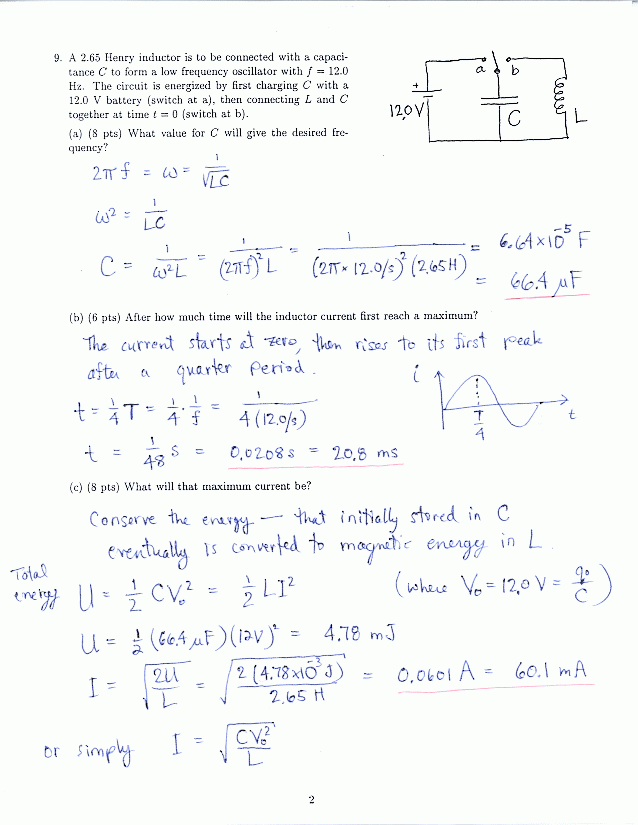 9. A 2.65 Henry inductor is to be connected with a capaci-
tance C to form a low frequency oscillator with f = 12.0
Hz. The circuit is energized by first charging C with a
12.0 V battery (switch at a), then connecting L and C
together at time t = 0 (switch at b).
a b
+
12.0V
C
L
(a) (8 pts) What value for C will give the desired fre-
quency?
2πf = ω = 1/√LC
ω² = 1/LC
C = 1/ω²L = 1/(2πf)²L = 1/(2π × 12.0/s)²(2.65H) = 6.64×10⁻⁵ F
= 66.4 μF
(b) (6 pts) After how much time will the inductor current first reach a maximum?
The current starts at zero, then rises to its first peak
after a quarter period.
t = 1/4 T = 1/4 · 1/f = 1/4(12.0/s)
t = 1/48 s = 0.0208 s = 20.8 ms
i
T/4
t
(c) (8 pts) What will that maximum current be?
Conserve the energy — that initially stored in C
eventually is converted to magnetic energy in L.
Total
energy U = 1/2 CV₀² = 1/2 LI² (where V₀ = 12.0 V = q₀/C)
U = 1/2 (66.4 μF)(12V)² = 4.78 mJ
I = √2U/L = √2(4.78×10⁻³ J)/2.65 H = 0.0601 A = 60.1 mA
or simply I = √CV₀²/L
2